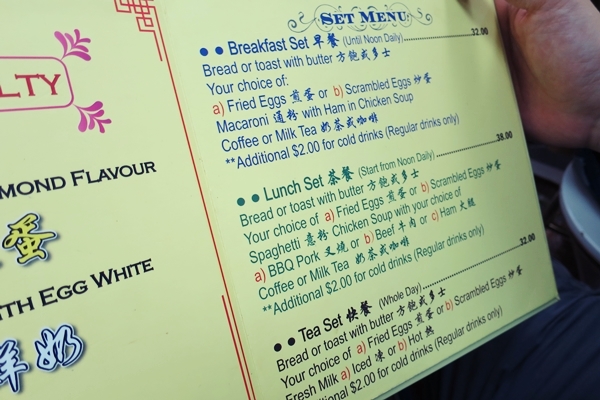 LTY
MOND FLAVOUR
蛋
ITH EGG WHITE
鲜奶
SET MENU
Breakfast Set 早餐 (Until Noon Daily) 32.00
Bread or toast with butter 方飽或多士
Your choice of:
a) Fried Eggs 煎蛋 or b) Scrambled Eggs 炒蛋
Macaroni 通粉 with Ham in Chicken Soup
Coffee or Milk Tea 奶茶或咖啡
**Additional $2.00 for cold drinks (Regular drinks only)
Lunch Set 茶餐 (Start from Noon Daily) 38.00
Bread or toast with butter 方飽或多士
Your choice of a) Fried Eggs 煎蛋 or b) Scrambled Eggs 炒蛋
Spaghetti 意粉 Chicken Soup with your choice of
a) BBQ Pork 叉燒 or b) Beef 牛肉 or c) Ham 火腿
Coffee or Milk Tea 奶茶或咖啡
**Additional $2.00 for cold drinks (Regular drinks only)
Tea Set 快餐 (Whole Day) 32.00
Bread or toast with butter 方飽或多士
Your choice of a) Fried Eggs 煎蛋 or b) Scrambled Eggs 炒蛋
Fresh Milk a) Iced 凍 or b) Hot 熱
**Additional $2.00 for cold drinks (Regular drinks only)